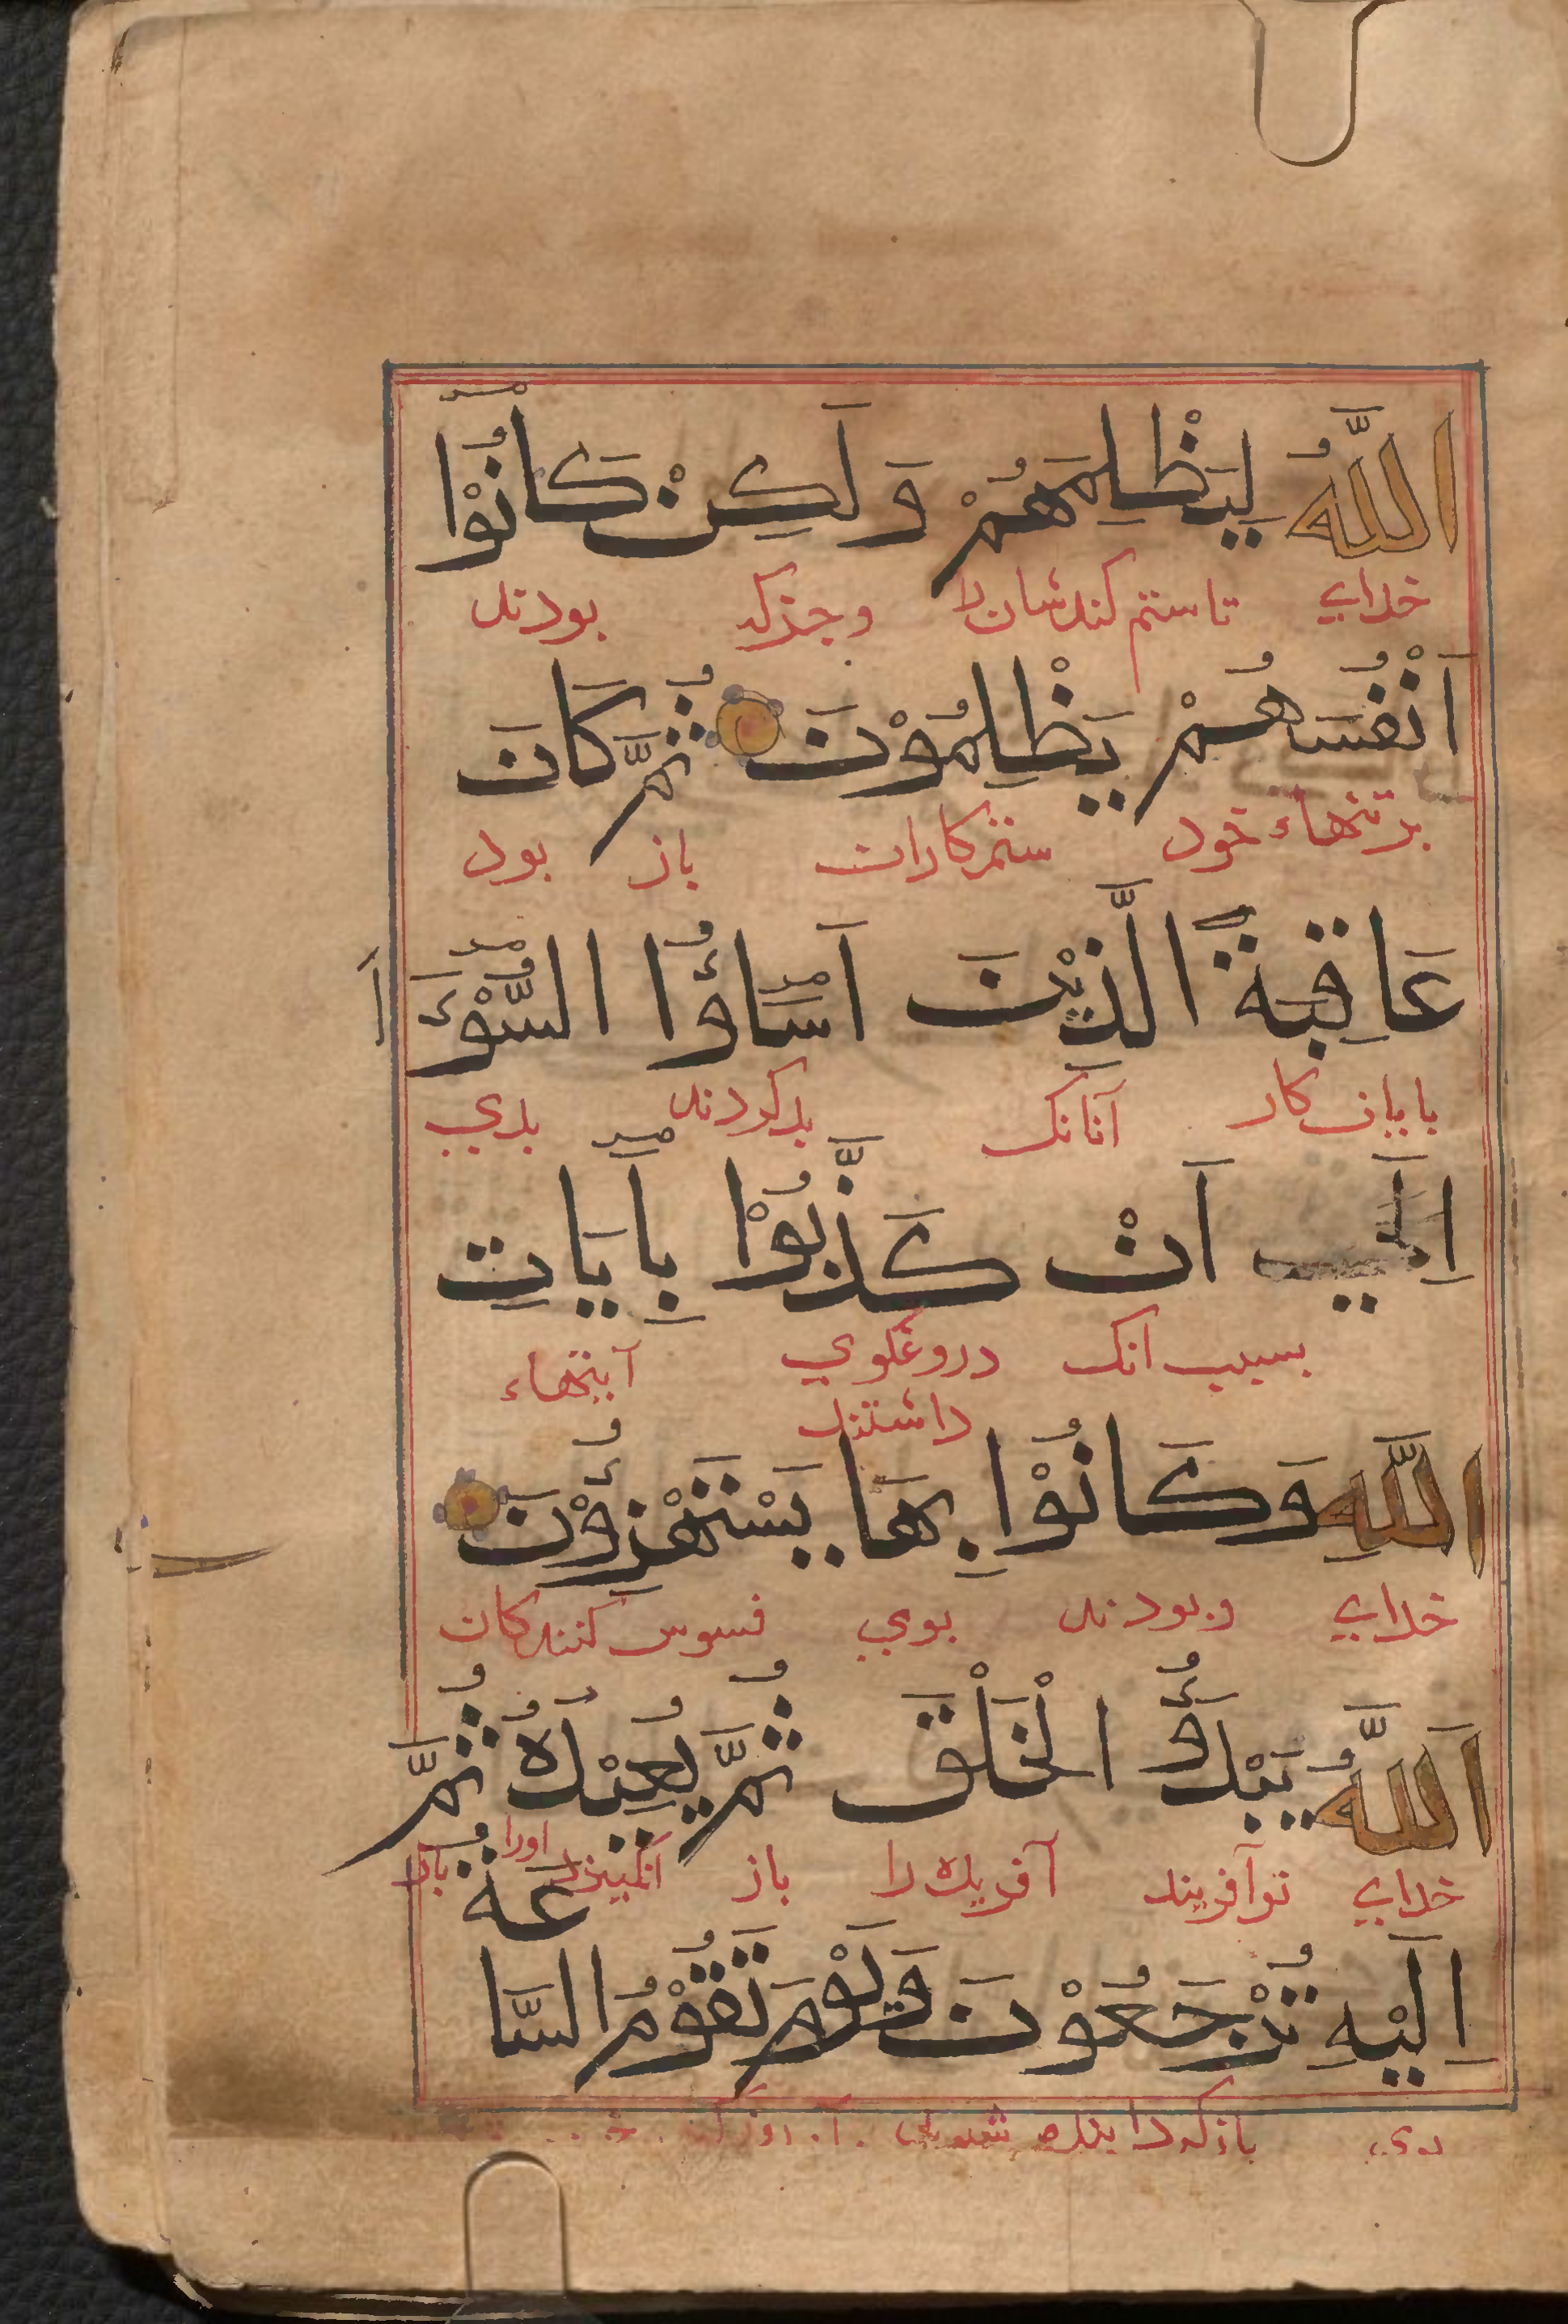 اللَّهُ لِيَظْلِمَهُمْ وَلَكِنْ كَانُوْآ
خدای تا ستم کندشان را وجزکه بودند
اَنْفُسَهُمْ يَظْلِمُوْنَ ثُمَّ كَانَ
برتنهاء خود ستمکاران باز بود
عَاقِبَةَ الَّذِيْنَ اَسَآؤُا السُّوْءَ
بایان کار آنانک بدکردند بدی
اِلَي اَنْ كَذَّبُوْا بِآيَاتِ
بسبب انک دروغکوی آیتهاء
داشتند
اللَّهِ وَكَانُوْا بِهَا يَسْتَهْزِؤُنَ
خدای وبودند بوی فسوس کنندکان
اَللَّهُ يَبْدَؤُ الْخَلْقَ ثُمَّ يُعِيْدُهُ ثُمَّ
خدای نوآفریند آفریده را باز انکیزد اورا باز
عَةُ
اِلَيْهِ تُرْجَعُوْنَ وَيَوْمَ تَقُوْمُ السَّا